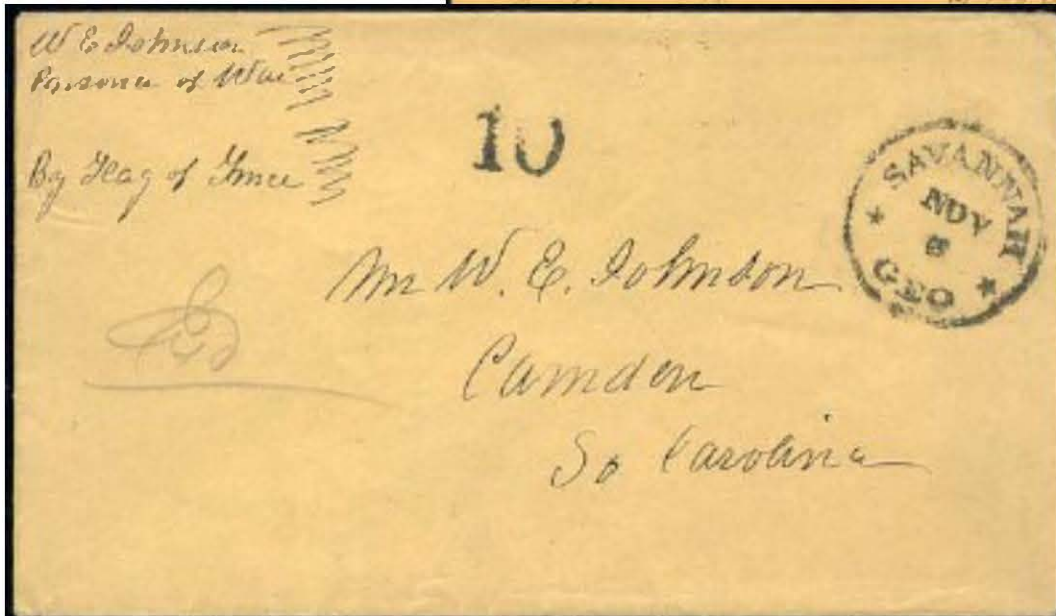 W E Johnson
Prisoner of War
By Flag of Truce
10
SAVANNAH
NOV
GEO
Mr W. E. Johnson
Camden
So Carolina